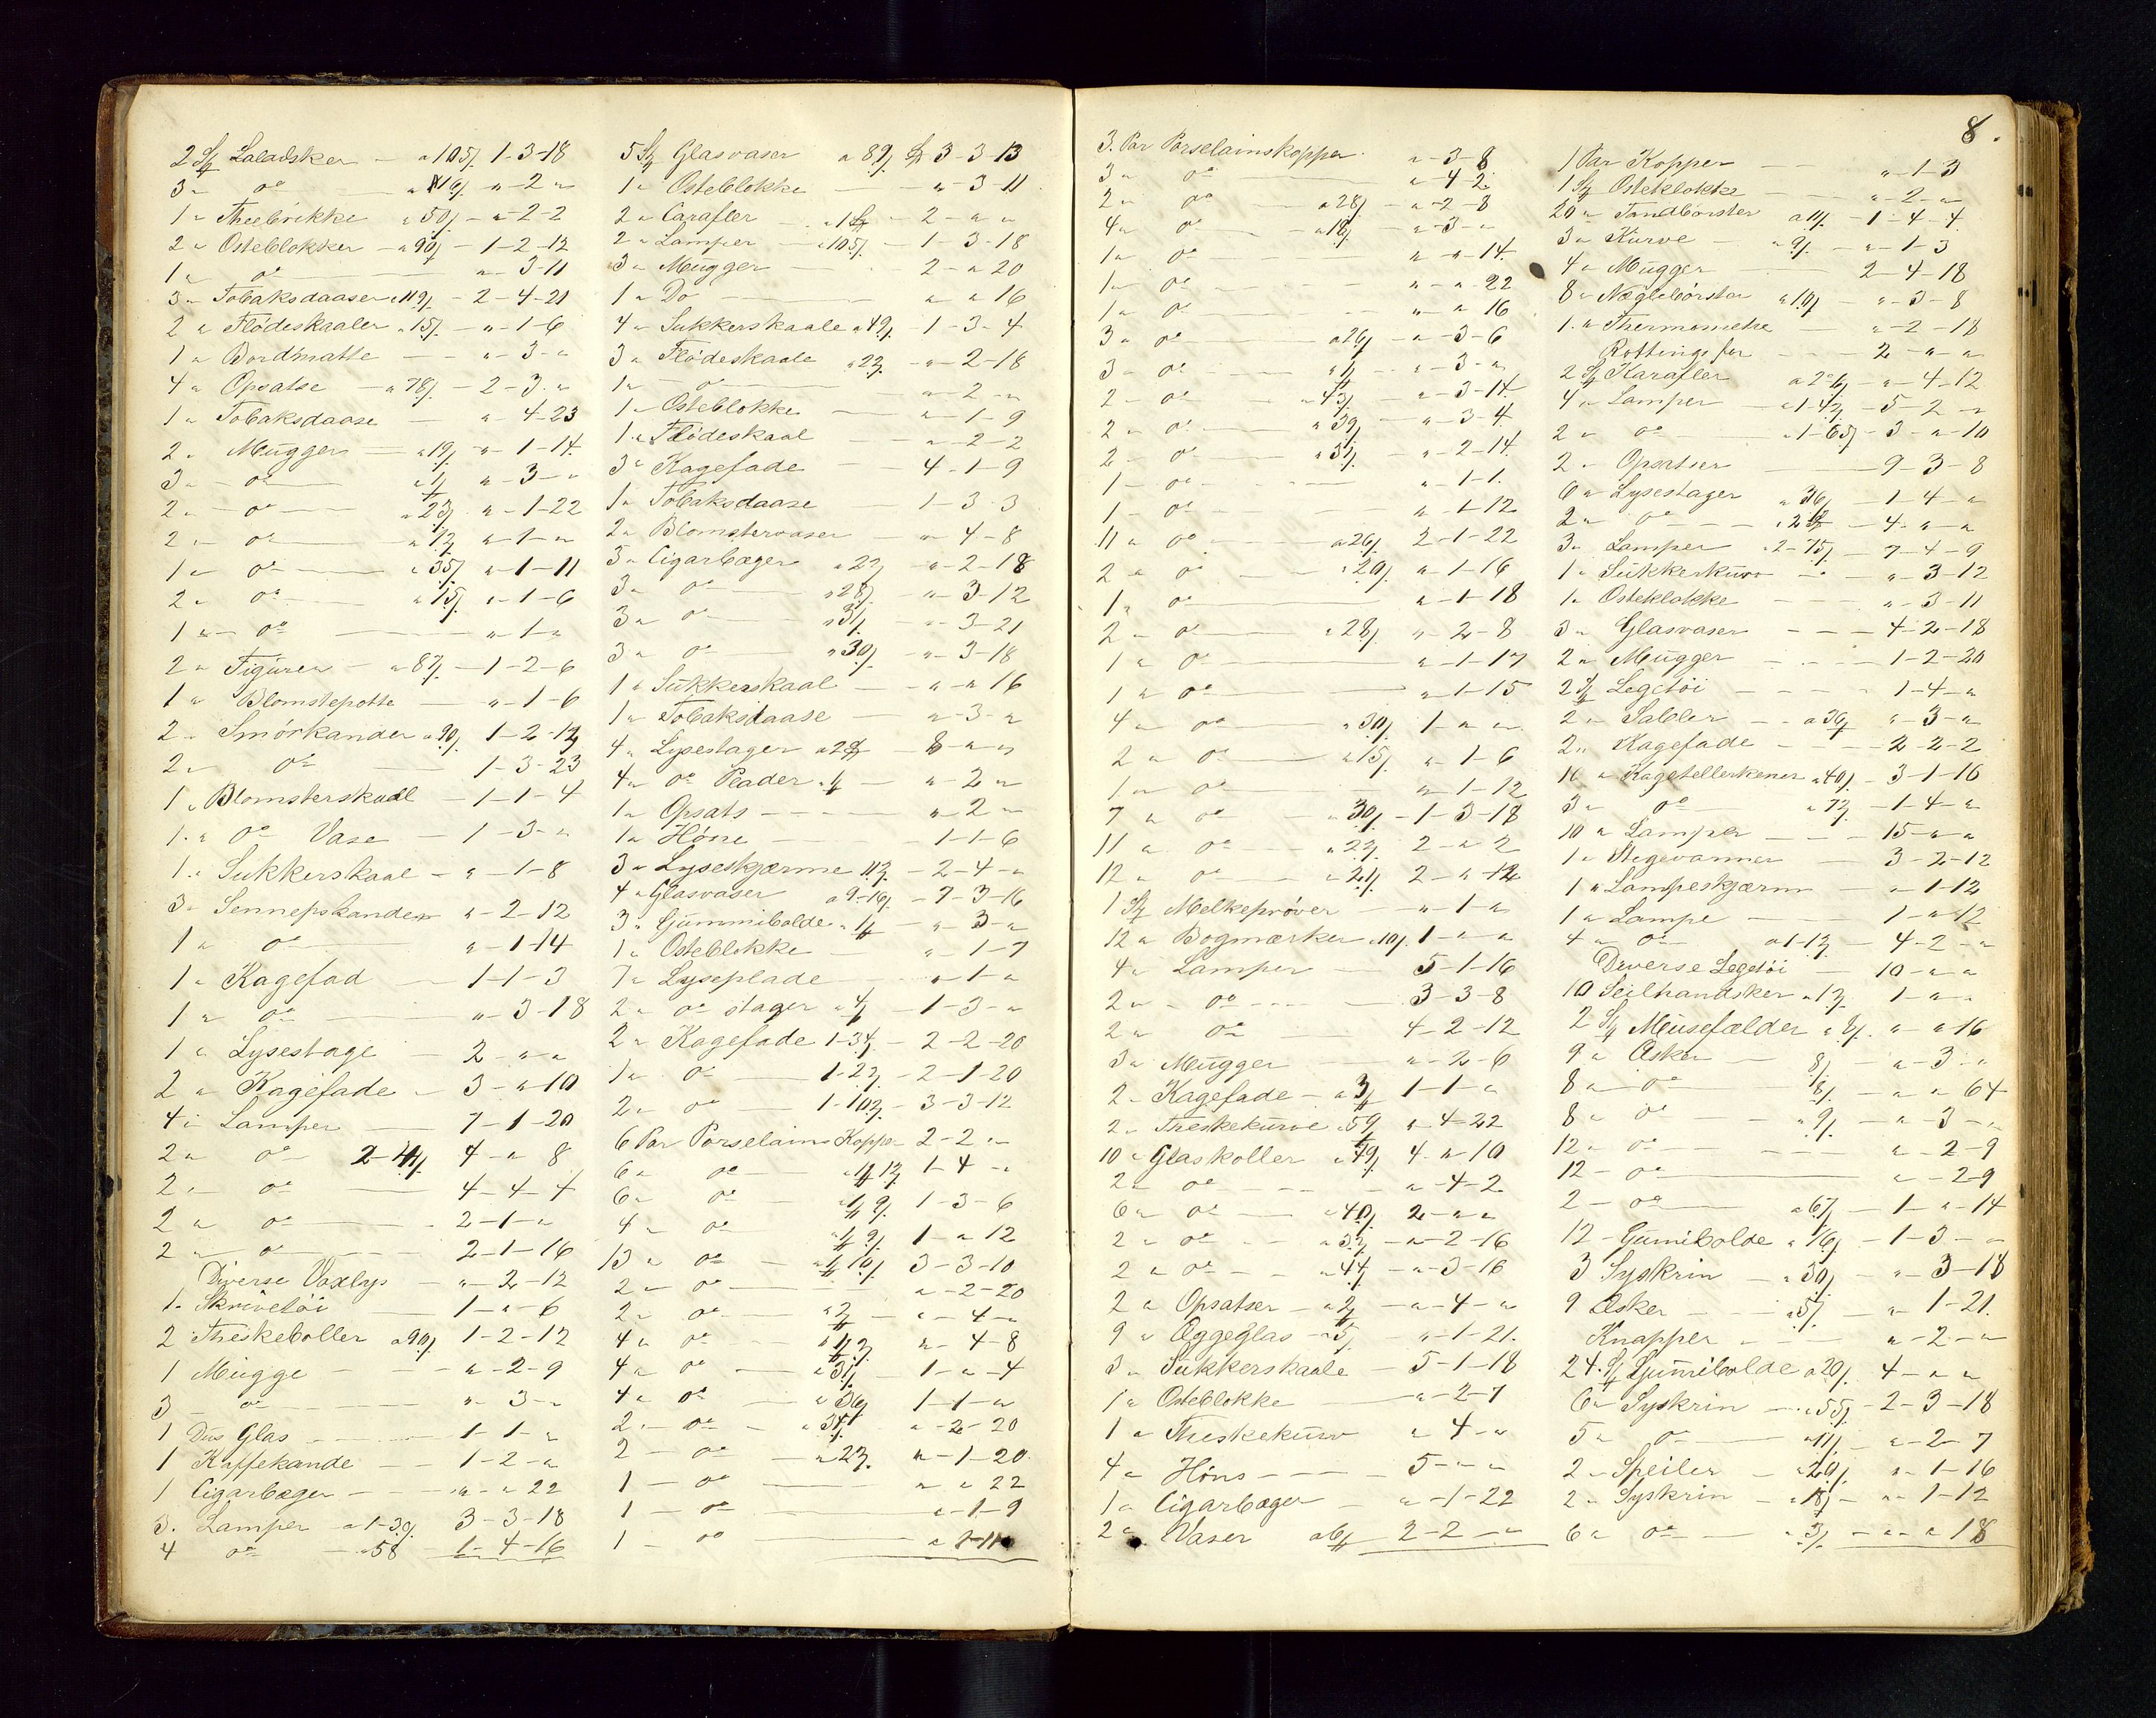 2 St Saladsker — a 105/ 1-3-18
3 " do — a 16/ "-2-"
1 " Theebrikke a 50/ - "-2-2
2 " Osteklokker - a 90/ - 1-2-12
1 " do — "-3-11
3 " Tobaksdaaser a 119/ - 2-4-21
2 " Flödeskaaler a 15/ - "-1-6
1 " Bordmatte - - "-3-"
4 " Opsatse - a 78/ - 2-3-"
1 " Tobaksdaase — "-4-23
2 " Mugger — a 19/ "-1-14
3 " do — "-3-"
2 " do — a 23/ "-1-22
2 " do — a 12/ "-1-"
1 " do — a 35/ "-1-11
2 " do — a 15/ "-1-6
1 " do — "-1-"
2 " Figurer - a 87/ - 1-2-6
1 " Blomstepotte — "-1-6
2 " Smörkander a 90/ 1-2-12
2 " do — 1-3-23
1 " Blomsterskaal - 1-1-4
1 " do Vase - 1-3-"
1 " Sukkerskaal - "-1-8
3 " Sennepskander "-2-12
1 " do — "-1-14
1 " Kagefad — 1-1-3
1 " do — "-3-18
1 " Lysestage - 2-"-"
2 " Kagefade - 3-"-10
4 " Lamper — 7-1-20
2 " do 2-4/ 4-"-8
2 " do — 4-4-4
2 " do — 2-1-"
2 " do — 2-1-16
Diverse Voxlys - "-2-12
1 - Skrivetöi — 1-"-6
2 Theskeboller a 90/ 1-2-12
1 Mugge — "-2-9
3 - do - "-3-"
1 Dus Glas - 1-1-"
1 Kaffekande - - 1-2-"
1 Cigarbæger - - "-"-22
3 - Lamper - a 1-30/ 3-3-18
4 do — a 58 1-4-16
5 St Glasvaser a 89/ 3-3-13
1 " Osteklokke — "-3-11
2 " Carafler - 2-"-"
2 " Lamper - a 105/ - 1-3-18
3 " Mugger - 2-"-20
1 " Do — "-"-16
4 " Sukkerskaale a 49/ - 1-3-4
3 " Flödeskaale a 23/ - "-2-18
1 " do — "-2-"
1 " Osteklokke - "-1-9
1 " Flödeskaal — "-2-2
3 " Kagefade - 4-1-9
1 " Tobaksdaase 1-3-3
2 " Blomstervaser - "-4-8
3 " Cigarbæger a 22/ "-2-18
3 " do — a 28/ "-3-12
3 " do — a 31/ "-3-21
3 " do — a 30/ "-3-18
1 " Sukkerskaal — "-"-16
1 " Tobaksdaase - "-3-"
4 " Lysestager - 8-"-"
4 " do Plader "-2-"
1 " Opsats - - - "-2-"
1 " Höne — 1-1-6
3 " Lyseskjærme - 2-4-"
4 " Glasvaser a 9-16/ - 7-3-16
3 " Gummibolde "-3-"
1 " Osteklokke - "-1-7
7 " Lyseplade — "-1-"
2 " do stager 1-3-"
2 " Kagefade 1-34/ - 2-2-20
1 " do — 1-22/ - 2-1-20
2 " do — 1-102/ - 3-3-12
6 Par Porselains Kopper 2-2-"
6 " do — 1-4-"
6 " do — 1-3-6
4 " do — 1-"-12
13 " do — 3-3-10
2 " do — "-2-20
2 " do — "-4-"
4 " do — "-4-8
4 " do — a 31/ 1-"-4
4 " do — a 36/ 1-1-"
2 " do - a 34/ "-2-20
2 — do — a 22/ "-1-20
1 — do — "-"-22
1 — do — "-1-9
1 - do — "-1-11
8.
3. Par Porselainskopper "-3-8
3 " do — "-4-2
2 " do — a 28/ - "-2-8
4 " do — a 18/ "-3-"
1 " do — "-"-14
1 " do - - - "-"-22
1 " do — "-"-16
3 " do — a 26/ - "-3-6
3 - do — "-3-"
2 - do — a 43/ "-3-14
2 - do — a 39/ "-3-4
2 - do — "-2-14
1 - do — "-1-1
1 - do — "-1-12
11 " do — a 26/ 2-1-22
2 " do — a 20/ "-1-16
1 " do — "-1-18
2 - do — a 28/ "-2-8
1 " do — "-1-17
1 " do — "-1-15
4 " do — a 30/ 1-"-"
2 " do — a 15/ "-1-6
1 " do — "-1-12
7 " do — a 30/ - 1-3-18
11 " do — a 22/ 2-"-2
12 " do — a 21/ 2-"-12
1 St Melkeprøver - "-1-"
12 " Bogmærker a 10/ 1-"-"
4 " Lamper — 5-1-16
2 " - do - - - 3-3-8
2 " do — 4-2-12
3 " Mugger — "-2-6
2 - Kagefade - 1-1-"
2 - Theskekurve a 59/ "-4-22
10 " Glaskoller a 49/ 4-"-10
2 " do — "-4-2
6 " do — a 40/ 2-"-"
2 " do - a 32/ - "-2-16
2 " do - - a 44/ - "-3-16
2 " Opsatser - "-4-"
9 " Æggeglas - a 5/ "-1-21
3 " Sukkerskaale - 5-1-18
1 " Osteklokke — "-2-7
1 " Theskekurv "-4-"
4 " Höns - - - 5-"-"
1 " Cigarbæger - "-1-22
2 " Vaser 2-2-"
1 Par Kopper — "-1-3
1 St Osteklokke — "-2-"
20 " Tandbörster a 11/ - 1-4-4
3 " Kurve - a 9/ - "-1-3
4 " Mugger — 2-4-18
8 " Neglebörster a 10/ - "-3-8
1 " Thermometre - "-2-18
Rottings for - - - 2-"-"
2 St Karafler - "-4-12
4 " Lamper - 5-2-"
2 " do — a 1-65/ - 3-"-10
2 - Opsatser — 9-3-8
6 " Lysestager a 36/ - 1-4-"
2 " do - - - 4-"-"
3 " Lamper a 2-75/ - 7-4-9
1 " Sukkerkurv - - "-3-12
1 " Osteklokke — "-3-11
3 " Glasvaser - - - 4-2-18
2 " Mugger - - - 1-2-20
2 St Legetöi - - - 1-4-"
2 " Sabler - - a 36/ "-3-"
2 " Kagefade - - 2-2-2
16 " Kagetellerkener a 40/ - 3-1-16
3 " do — a 72/ - 1-4-"
10 " Lamper — 15-"-"
1 " Stegevanner — 3-2-12
1 " Lampeskjærm — "-1-12
1 " Lampe — 1-"-12
4 " do a 1-12/ - 4-2-"
Diverse Legetöi - 10-"-"
10 Seilhandsker a 12/ 1-"-"
2 St Musefælder a 8/ "-"-16
9 " Æsker - 8/ - "-3-"
8 " do — 8/ - "-"-64
8 " do — a 9/ - "-3-"
12 " do — "-2-9
12 - do — "-2-9
2 - do — a 67/ - 1-"-14
12 - Gumibolde a 16/ - 1-3-"
3 Syskrin — a 30/ - "-3-18
9 Æsker — a 5/ - "-1-21
Knapper - - - "-2-"
24 St Gumibolde a 20/ 4-"-"
6 " Syskrin — a 55/ - 2-3-18
5 " do — a 11/ - "-2-7
2 - Speiler - a 20/ "-1-16
2 - Syskrin - a 18/ - "-1-12
6 " do — a 3/ - "-"-18